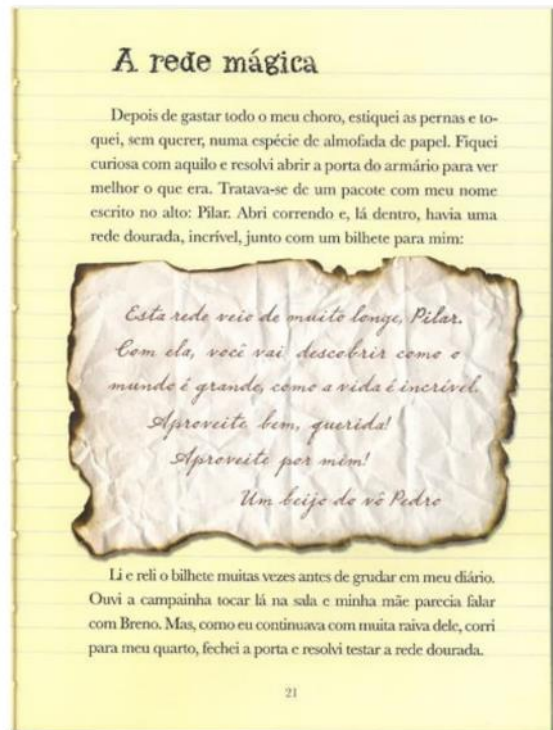 A rede mágica
Depois de gastar todo o meu choro, estiquei as pernas e to-
quei, sem querer, numa espécie de almofada de papel. Fiquei
curiosa com aquilo e resolvi abrir a porta do armário para ver
melhor o que era. Tratava-se de um pacote com meu nome
escrito no alto: Pilar. Abri correndo e, lá dentro, havia uma
rede dourada, incrível, junto com um bilhete para mim:
Esta rede veio de muito longe, Pilar.
Com ela, você vai descobrir como o
mundo é grande, como a vida é incrível.
Aproveite bem, querida!
Aproveite por mim!
Um beijo do vô Pedro
Li e reli o bilhete muitas vezes antes de grudar em meu diário.
Ouvi a campainha tocar lá na sala e minha mãe parecia falar
com Breno. Mas, como eu continuava com muita raiva dele, corri
para meu quarto, fechei a porta e resolvi testar a rede dourada.
21